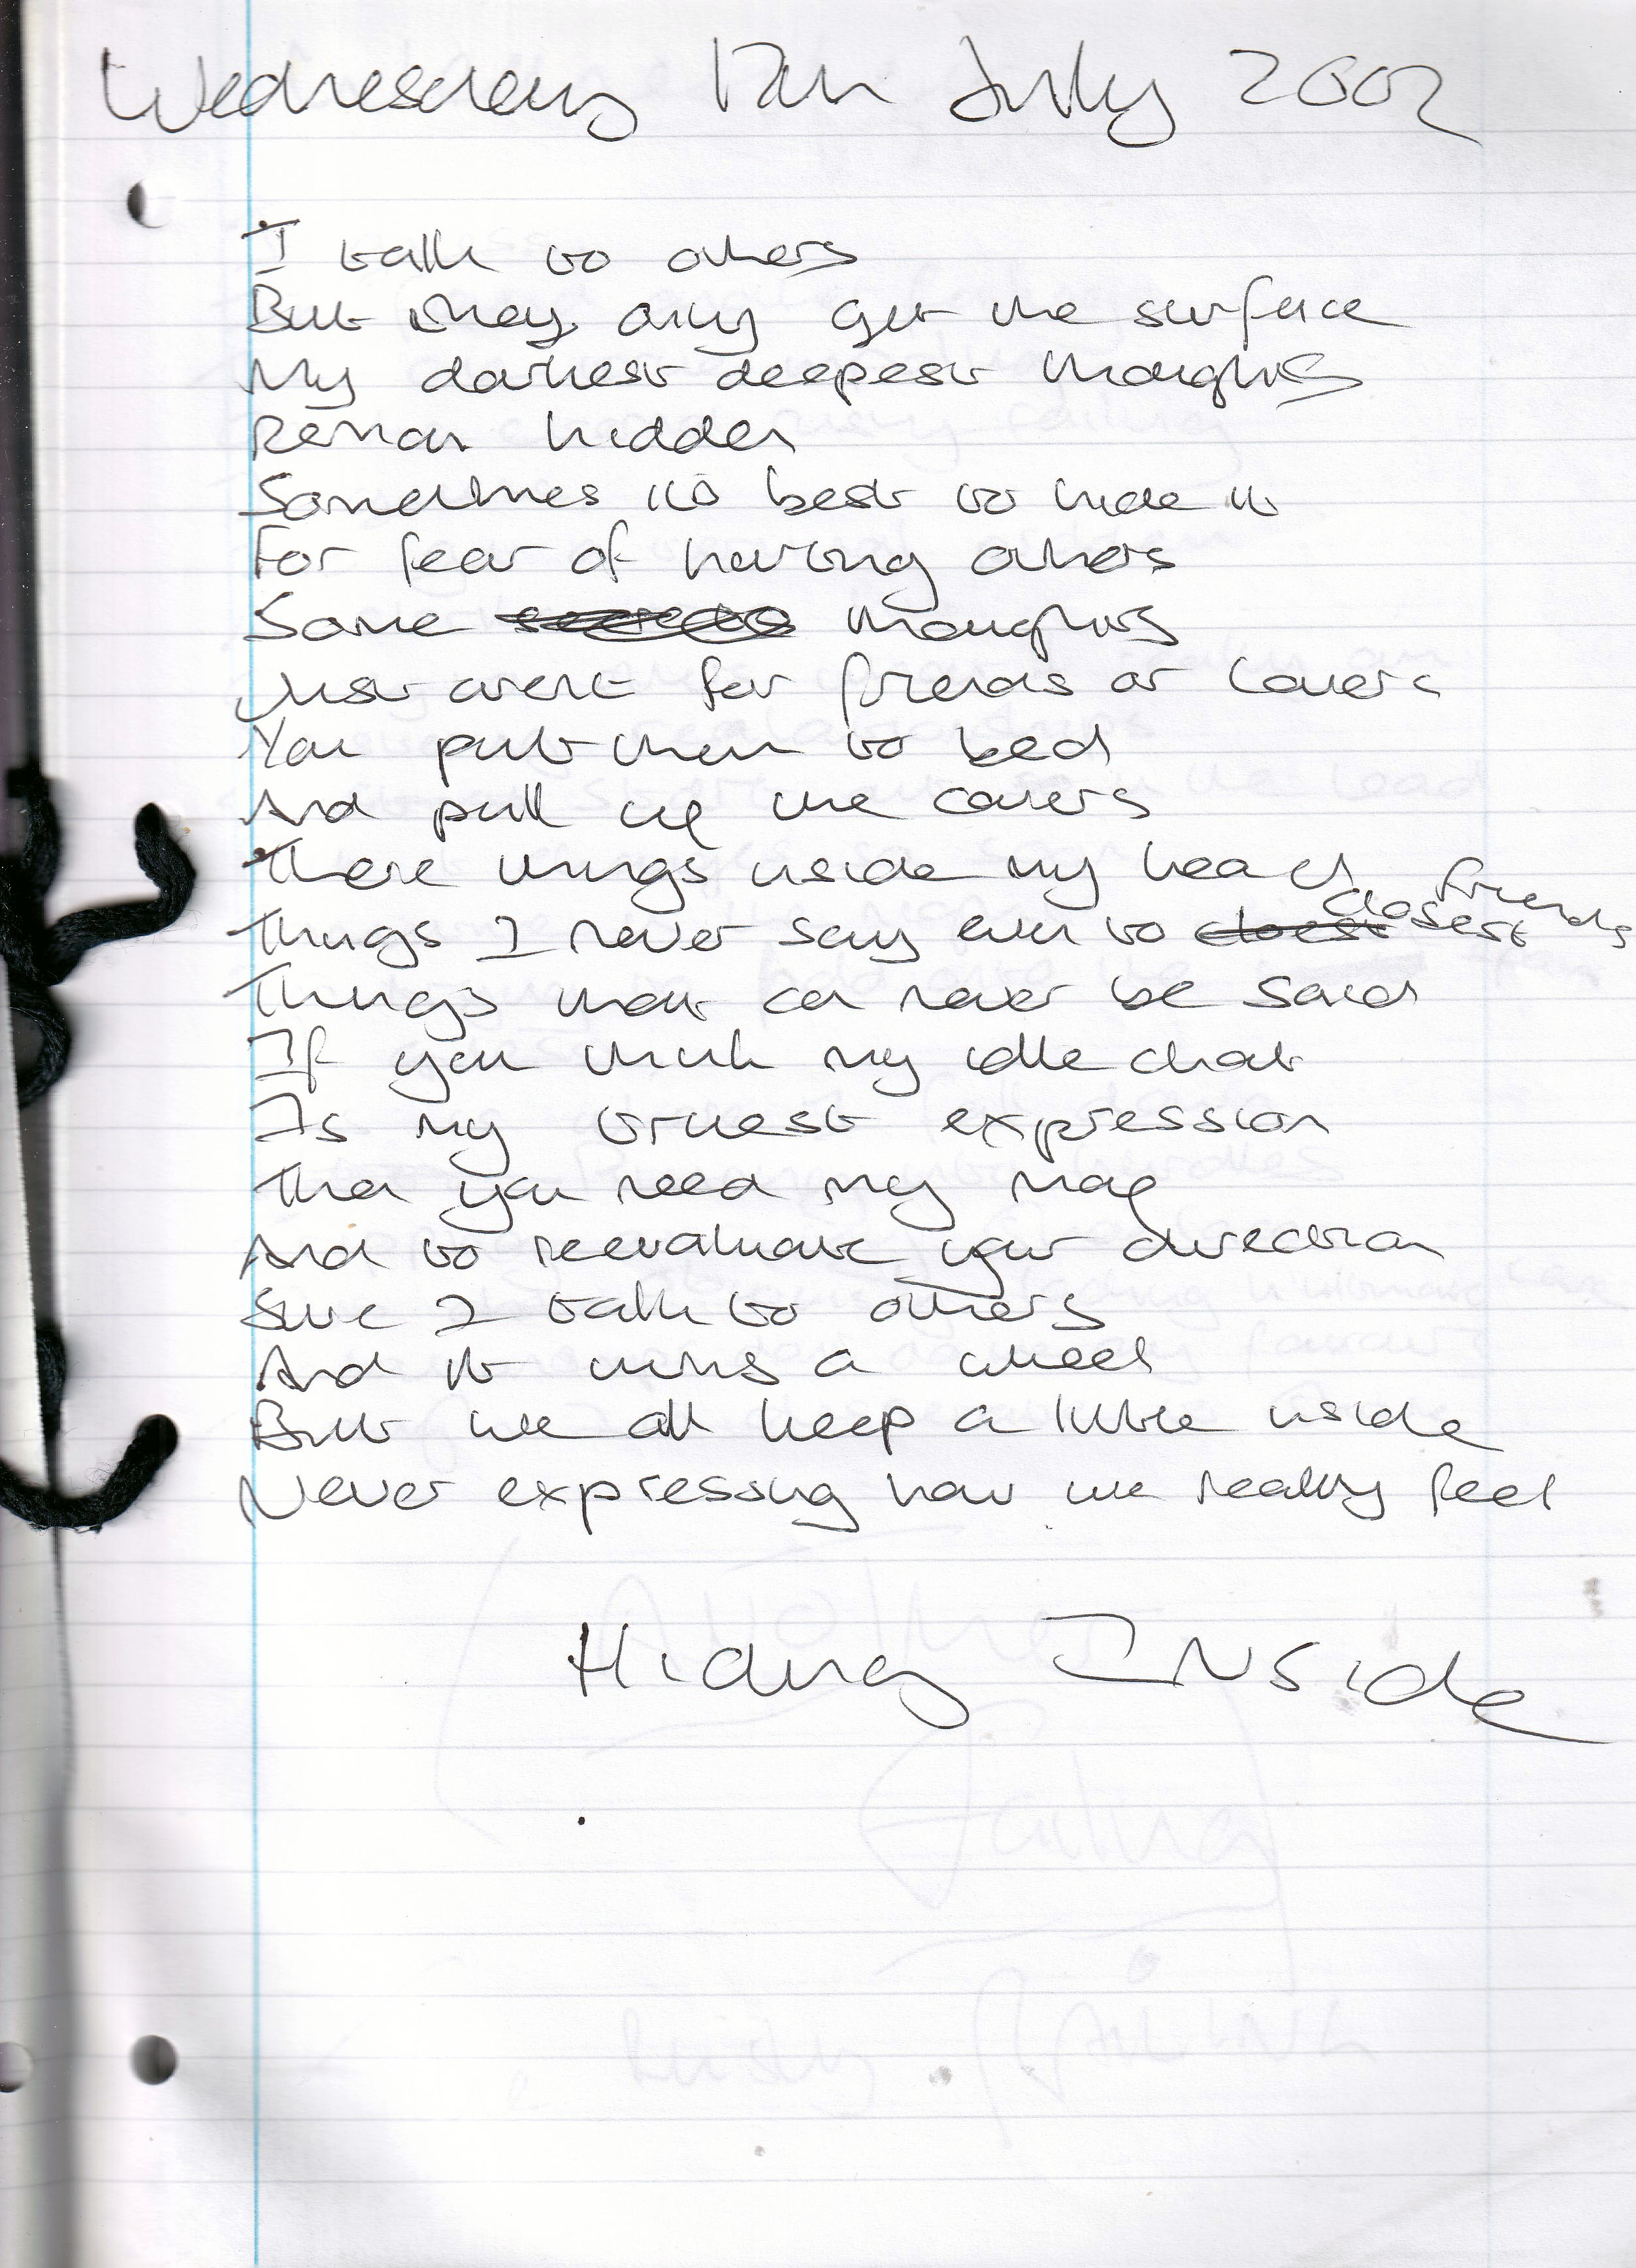 Wednesday 17th July 2002
I talk to others
But they only get the surface
My darkest deepest thoughts
Remain hidden
Sometimes its best to hide it
For fear of hurting others
Some secrets thoughts
Just arent for friends or lovers
You put them to bed
And pull up the covers
There things inside my head
Things I never say even to closest closest friends
Things that can never be said
If you think my idle chat
Is my truest expression
Then you need my map
And to reevaluate your direction
Sure I talk to others
And it turns a wheel
But we all keep a little inside
Never expressing how we really feel
Hiding Inside